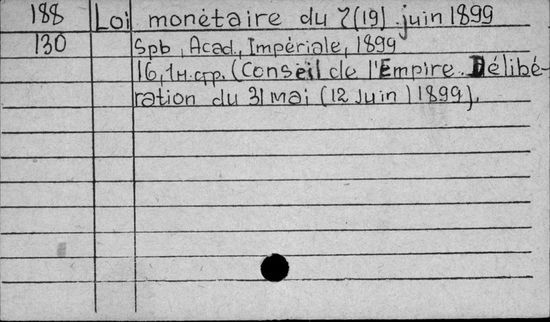 188 Loi monétaire du 7(19) juin 1899
130 Spb, Acad. Impériale, 1899
16, 1н.стр. (Conseil de l'Empire. Délibé-
ration du 31 mai (12 Juin) 1899).